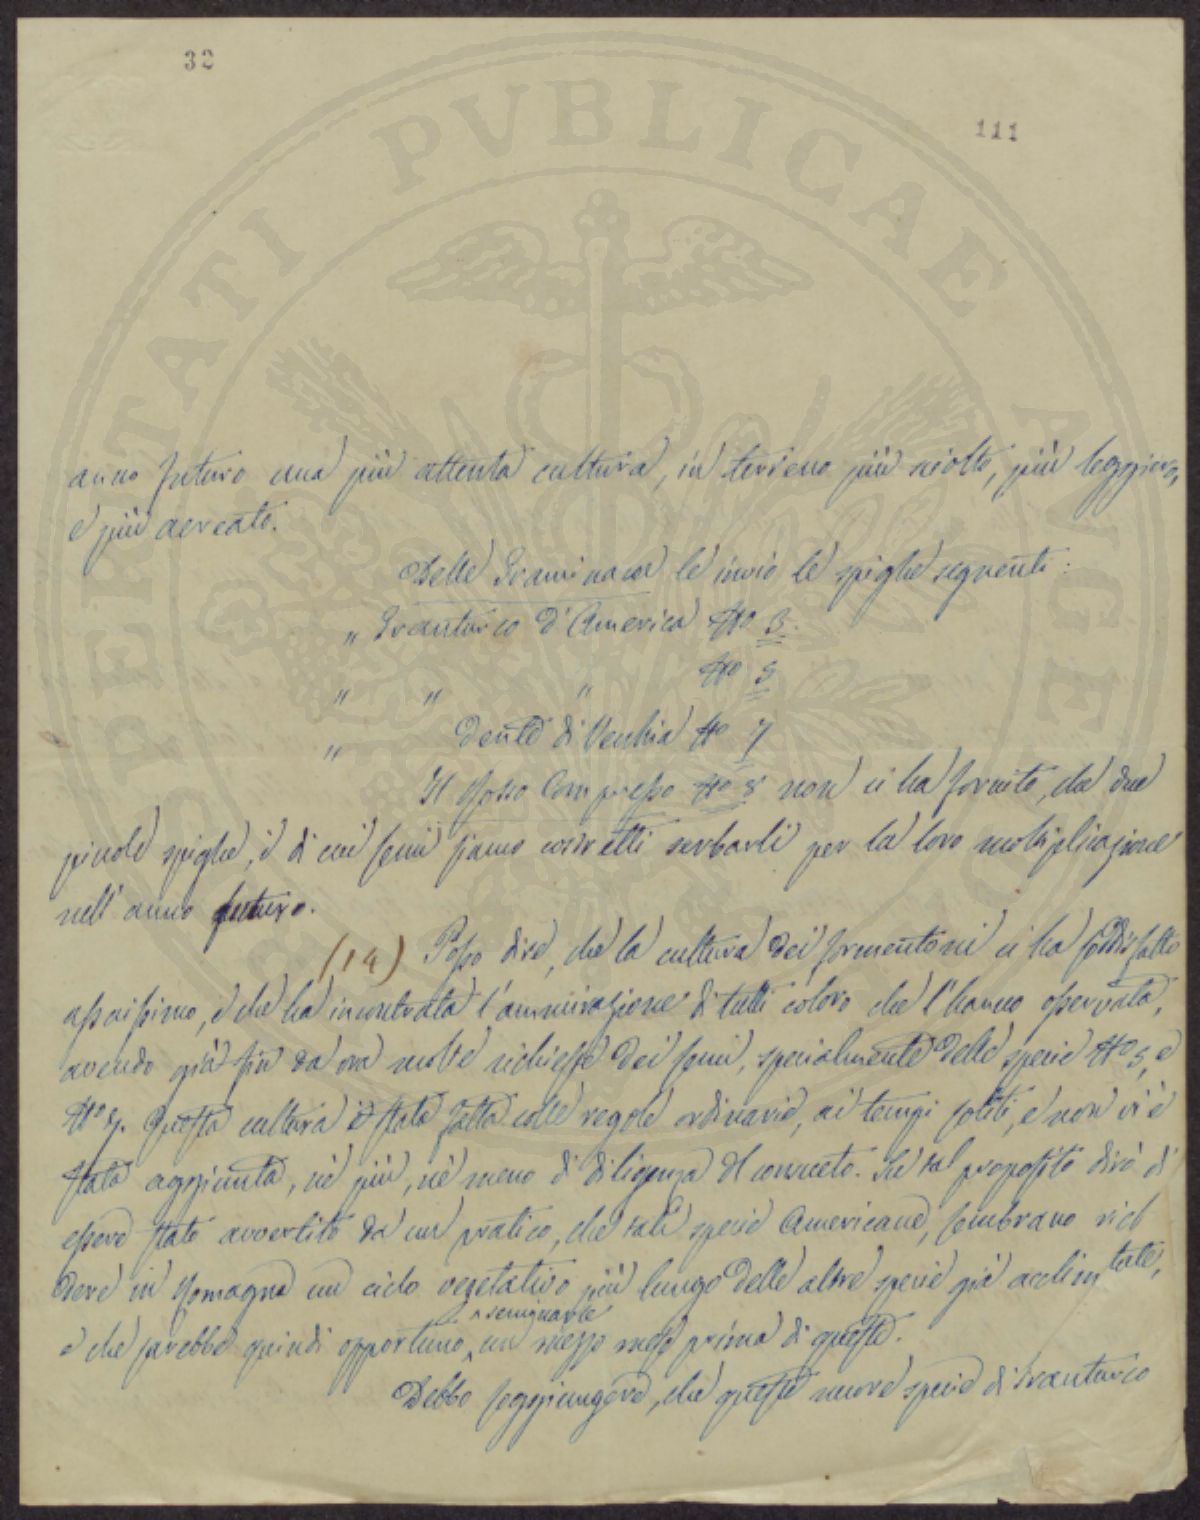 32
111
PERPETVITATI PVBLICAE
anno futuro una più attenta cultura, in terreno più sciolto, più leggiero,
e più aereato.
Delle Graminacee le invio le spighe seguenti:
" Granturco d'America No 3.
" " " No 5
" Dente di Vecchia No 7
Il Rosso Compresso No 8 non ci ha fornito, che due
piccole spighe, i di cui semi siamo costretti serbarli per la loro moltiplicazione
nell'anno futuro.
(14) Posso dire, che la cultura dei formentoni ci ha soddisfatto
assaissimo, e che ha incontrata l'ammirazione di tutti coloro che l'hanno osservata,
avendo già fin da ora molte richieste dei semi, specialmente delle specie No 5, e
No 7. Questa cultura è stata fatta colle regole ordinarie, ai tempi soliti, e non vi è
stata aggiunta, nè più, nè meno di diligenza del consueto. Su tal proposito dirò di
essere stato avvertito da un pratico, che tali specie Americane, sembrano rich
dere in Romagna un ciclo vegetativo più lungo delle altre specie già acclimtate,
e che sarebbe quindi opportuno, seminarle un mezzo mese prima di queste.
Debbo soggiungere, che queste nuove specie di Granturco